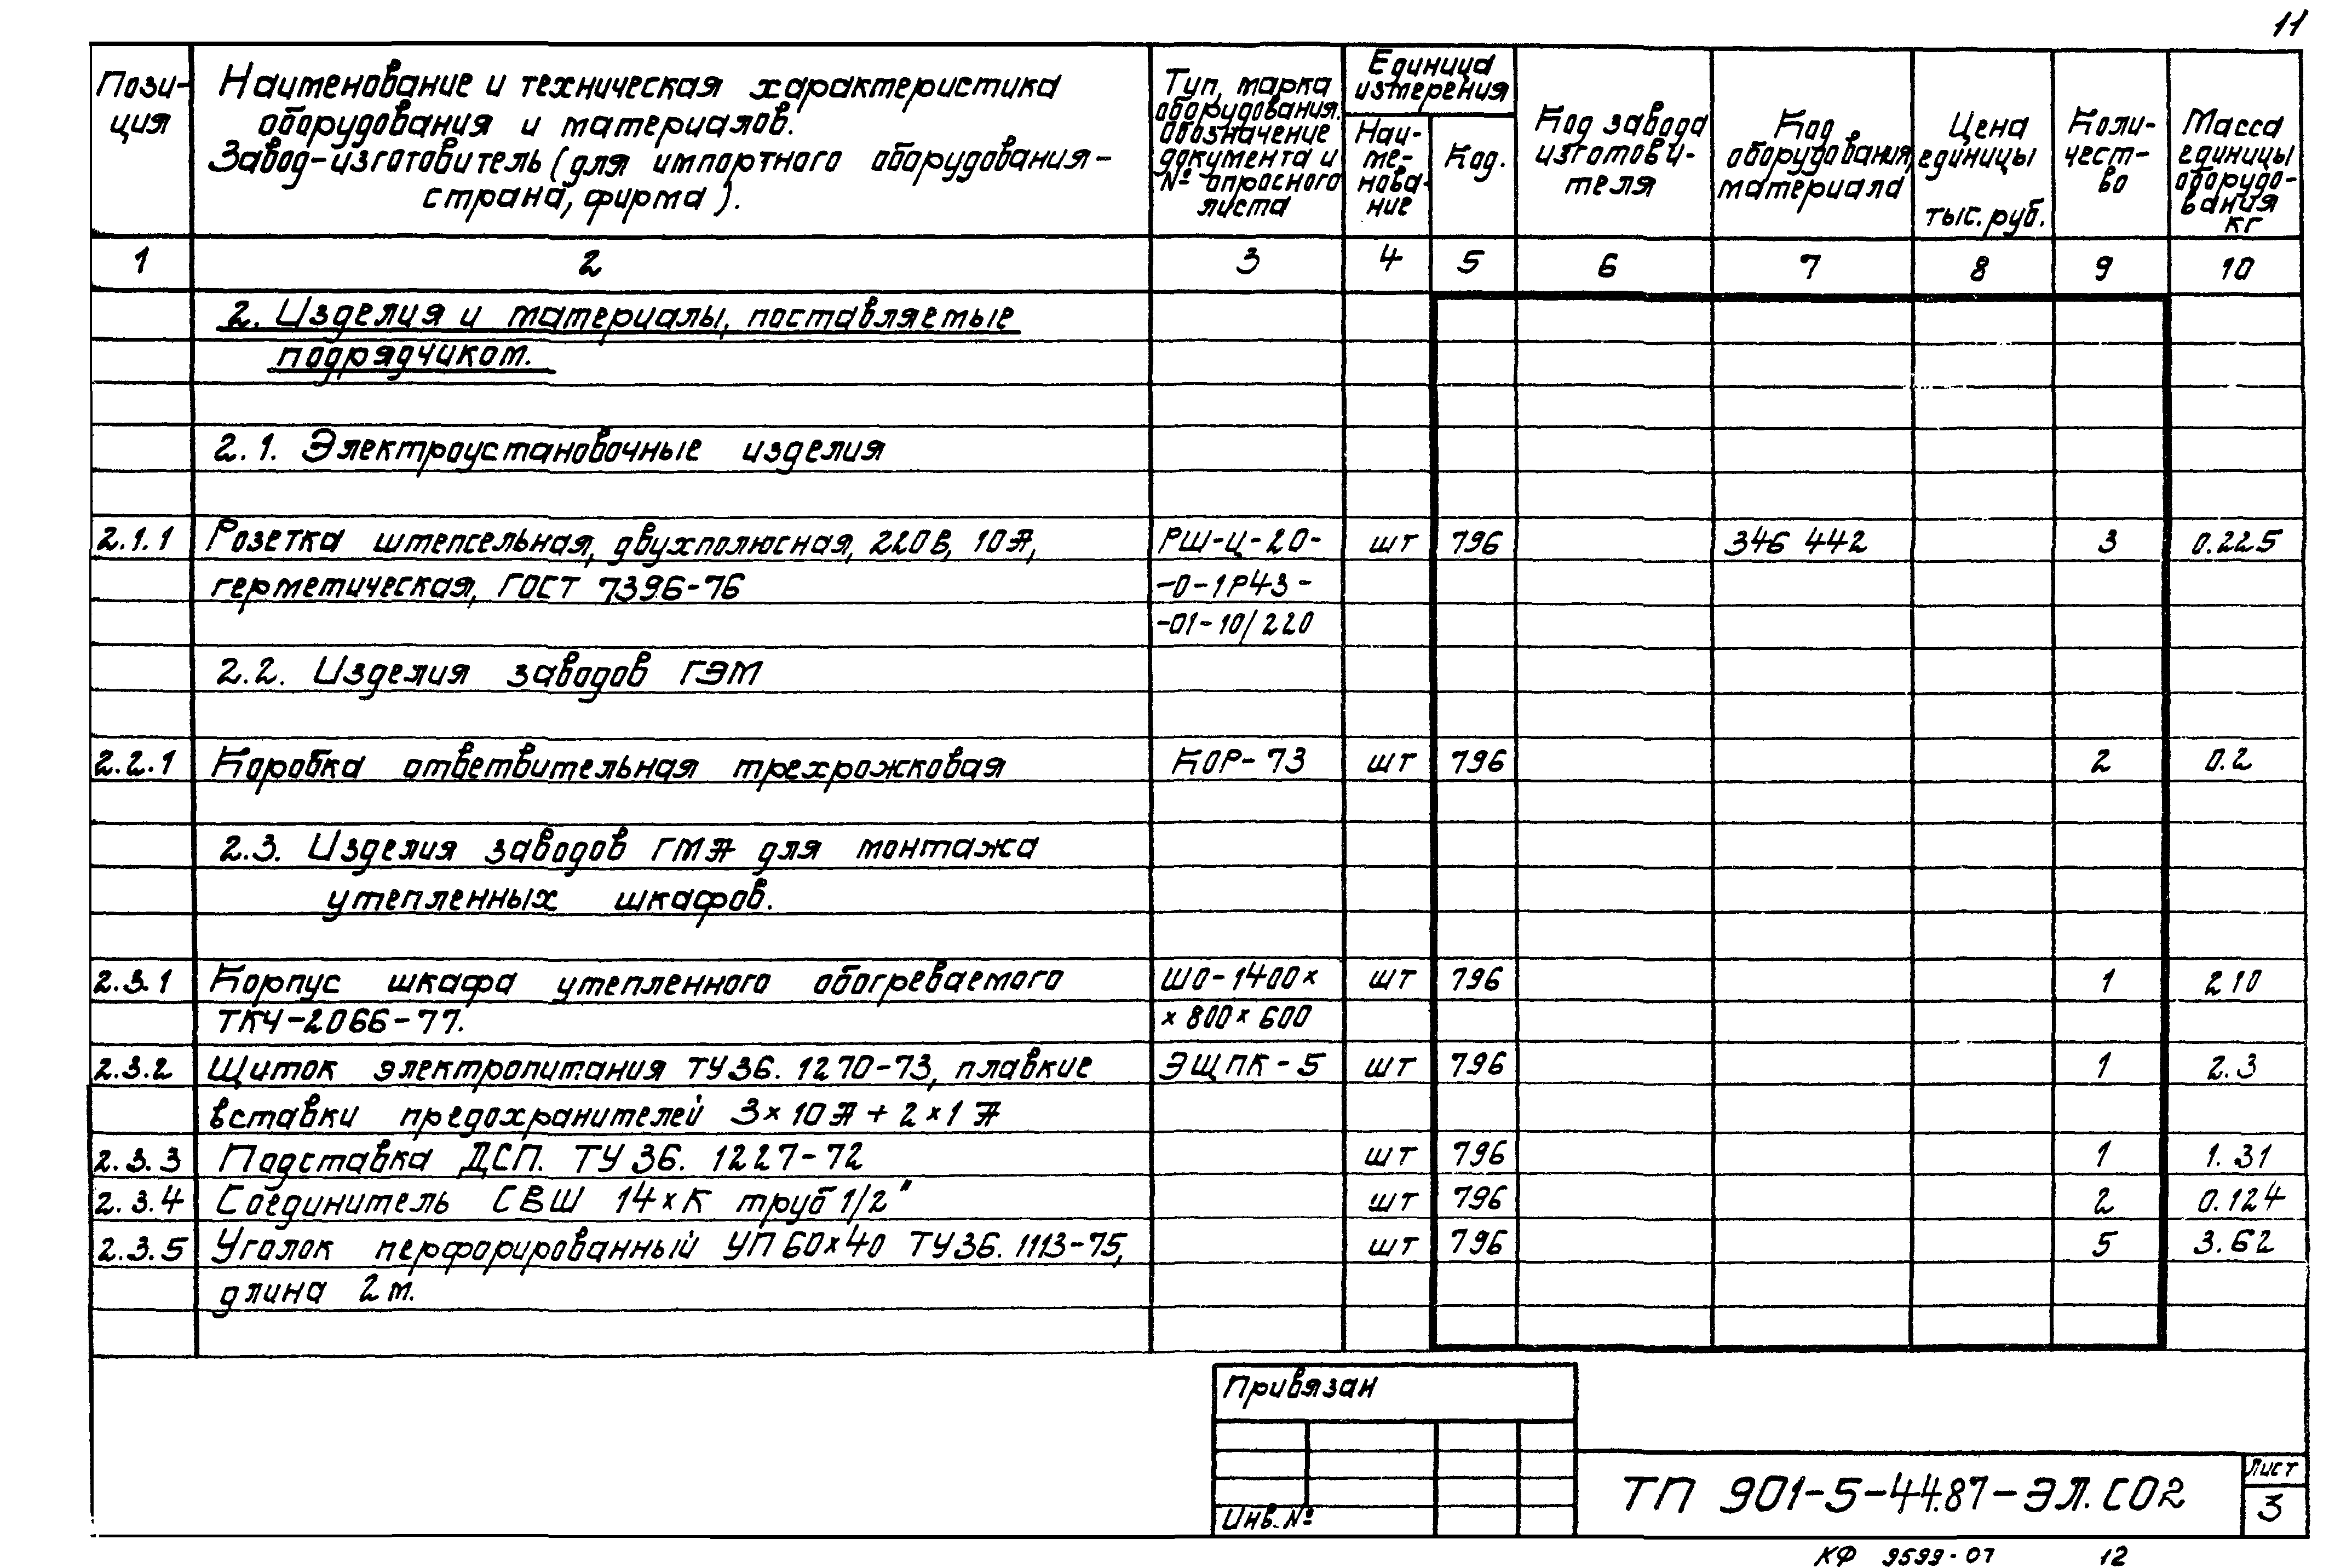 11
Пози-
ция
Наименование и техническая характеристика
оборудования и материалов.
Завод-изготовитель (для импортного оборудования-
страна, фирма).
Тип, марка
оборудования.
Обозначение
документа и
№ опросного
листа
Единица
измерения
Наи-
ме-
нова-
ние
Код.
Код завода
изготови-
теля
Код
оборудования,
материала
Цена
единицы
тыс. руб.
Коли-
чест-
во
Масса
единицы
оборудо-
вания
кг
1 2 3 4 5 6 7 8 9 10
2. Изделия и материалы, поставляемые
подрядчиком.
2.1. Электроустановочные изделия
2.1.1 Розетка штепсельная, двухполюсная, 220В, 10А, РШ-Ц-20- шт 796 346 442 3 0.225
герметическая, ГОСТ 7396-76 -0-1Р43-
-01-10/220
2.2. Изделия заводов ГЭМ
2.2.1 Коробка ответвительная трехрожковая КОР-73 шт 796 2 0.2
2.3. Изделия заводов ГМА для монтажа
утепленных шкафов.
2.3.1 Корпус шкафа утепленного обогреваемого ШО-1400× шт 796 1 210
ТКЧ-2066-77. ×800×600
2.3.2 Щиток электропитания ТУ36.1270-73, плавкие ЭЩПК-5 шт 796 1 2.3
вставки предохранителей 3×10А+2×1А
2.3.3 Подставка ДСП. ТУ 36. 1227-72 шт 796 1 1.31
2.3.4 Соединитель СВШ 14×К труб 1/2" шт 796 2 0.124
2.3.5 Уголок перфорированный УП 60×40 ТУ36.1113-75, шт 796 5 3.62
длина 2м.
Привязан
Инв. №
ТП 901-5-44.87-ЭЛ.СО2
Лист
3
КФ 9599-07 12